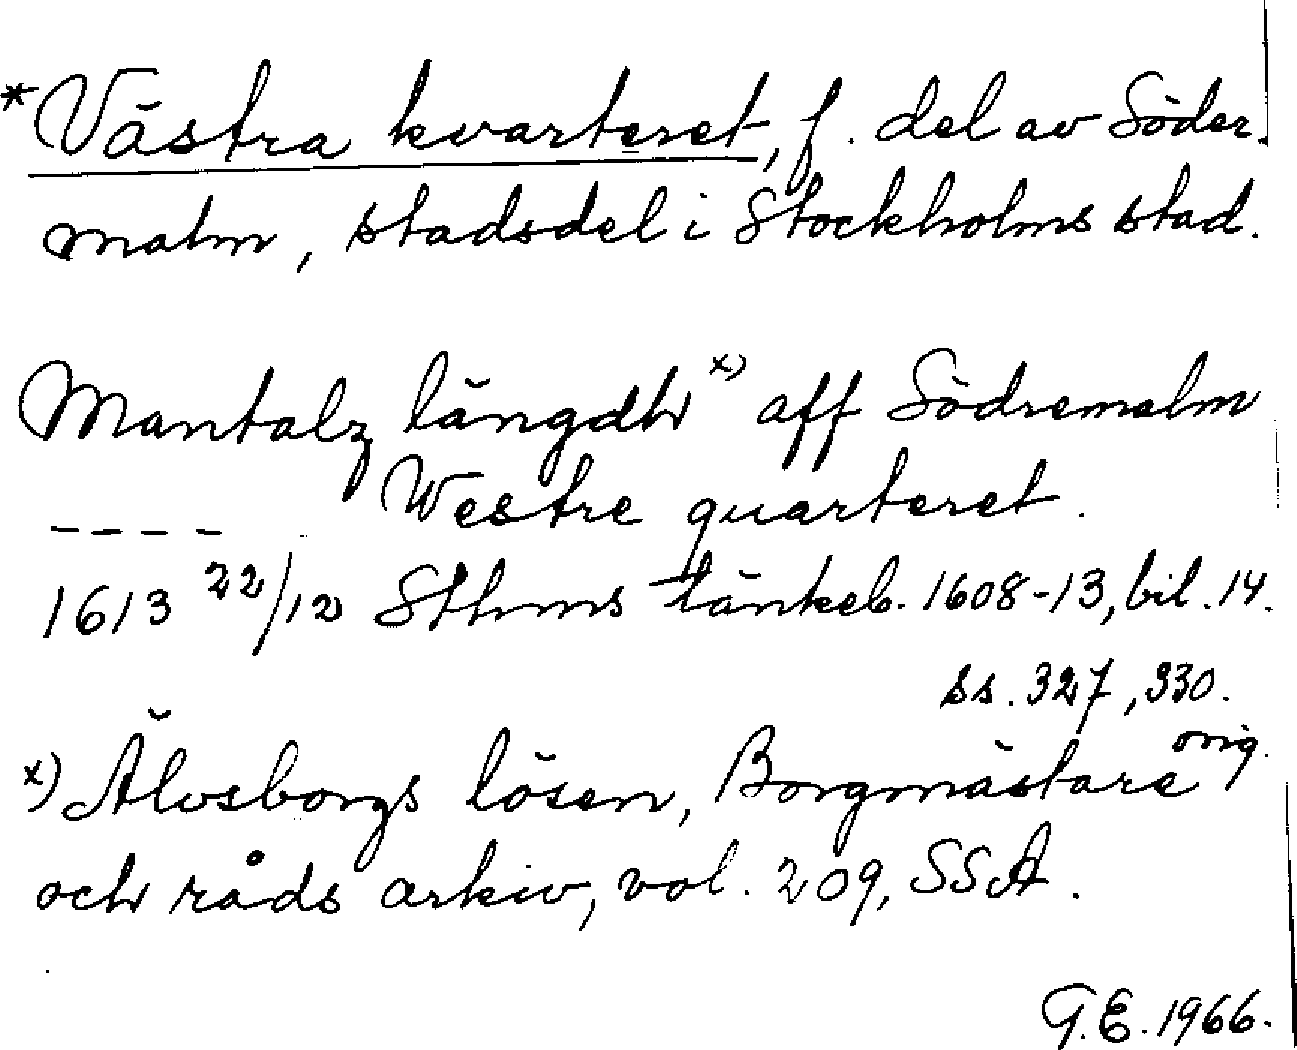 *Västra kvarteret, f. del av Söder-
malm, stadsdel i Stockholms stad.
Mantalz längdh x) aff Södremalm
---- Westre quarteret.
1613 22/12 Sthms tänkeb. 1608-13, bil. 14.
ss. 327, 330.
orig.
x) Älvsborgs lösen, Borgmästare
och råds arkiv, vol. 209, SSA.
G.E. 1966.